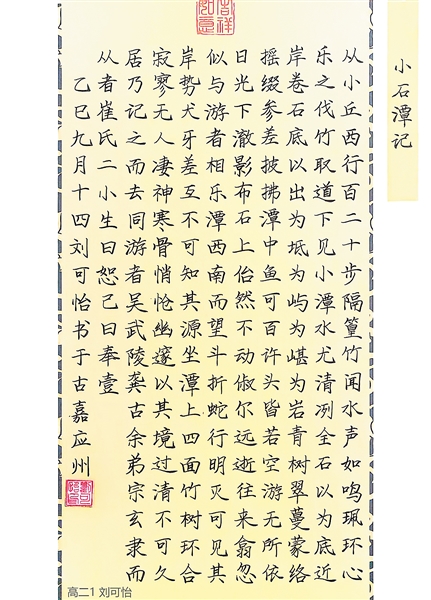 小石潭记
吉祥
如意
从小丘西行百二十步隔篁竹闻水声如鸣珮环心
乐之伐竹取道下见小潭水尤清冽全石以为底近
岸卷石底以出为坻为屿为嵁为岩青树翠蔓蒙络
摇缀参差披拂潭中鱼可百许头皆若空游无所依
日光下澈影布石上佁然不动俶尔远逝往来翕忽
似与游者相乐潭西南而望斗折蛇行明灭可见其
岸势犬牙差互不可知其源坐潭上四面竹树环合
寂寥无人凄神寒骨悄怆幽邃以其境过清不可久
居乃记之而去同游者吴武陵龚古余弟宗玄隶而
从者崔氏二小生曰恕己曰奉壹
乙巳九月十四刘可怡书于古嘉应州
高二1 刘可怡